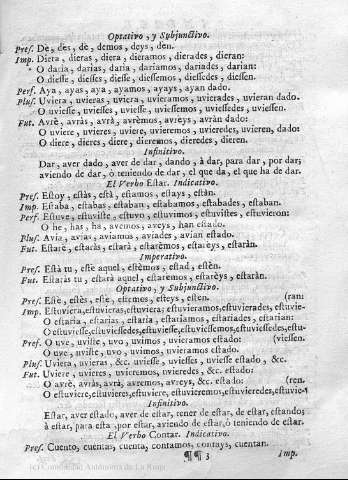 Optativo, y Subjunctivo.
Pres. De, des, dè, demos, deys, den.
Imp. Diera, dieras, diera, dieramos, dierades, dieran:
O daria, darias, daria, dariamos, dariades, darian:
O diesse, diesses, diesse, diessemos, diessedes, diessen.
Perf. Aya, ayas, aya, ayamos, ayays, ayan dado.
Plus. Uviera, uvieras, uviera, uvieramos, uvierades, uvieran dado.
O uviesse, uviesses, uviesse, uviessemos, uviessedes, uviessen.
Fut. Avrè, avràs, avrà, avrèmos, avrèys, avràn dado:
O uviere, uvieres, uviere, uvieremos, uvieredes, uvieren, dado:
O diere, dieres, diere, dieremos, dieredes, dieren.
Infinitivo.
Dar, aver dado, aver de dar, dando, à dar, para dar, por dar;
aviendo de dar, o teniendo de dar, el que da, el que ha de dar.
El Verbo Estar. Indicativo.
Pres. Estoy, estàs, està, estamos, estays, estàn.
Imp. Estaba, estabas, estaba, estabamos, estabades, estaban.
Perf. Estuve, estuviste, estuvo, estuvimos, estuvistes, estuvieron:
O he, has, ha, avemos, aveys, han estado.
Plus. Avia, avias, avia, aviamos, aviades, avian estado.
Fut. Estarè, estaràs, estarà, estarèmos, estarèys, estaràn.
Imperativo.
Pres. Està tu, estè aquel, estèmos, estad, estèn.
Fut. Estaràs tu, estarà aquel, estaremos, estarèys, estaràn.
Optativo, y Subjunctivo.
Pres. Estè, estès, estè, estemos, esteys, estèn. (ran:
Imp. Estuviera, estuvieras, estuviera, estuvieramos, estuvierades, estuvie-
O estaria, estarias, estaria, estariamos, estariades, estarian:
O estuviesse, estuviesses, estuviesse, estuviessemos, estuviessedes, estu-
Pres. O uve, uviste, uvo, uvimos, uvieron estado: (viessen.
O uve, uviste, uvo, uvimos, uvieron estado.
Plus. Uviera, uvieras, &c. uviesse, uviesses, uviesse estado, &c.
Fut. Uviere, uvieres, uvieremos, uvieredes, &c. estado:
O avrè, avràs, avrà, avremos, avreys, &c. estado: (ren.
O estuviere, estuvieres, estuviere, estuvieremos, estuvieredes, estuvie-
Infinitivo.
Estar, aver estado, aver de estar, tener de estar, de estar, estando;
à estar, para esta, por estar, aviendo de estar, ò teniendo de estar.
El Verbo Contar. Indicativo.
Pres. Cuento, cuentas, cuenta, contamos, contays, cuentan.
¶¶ 3 Imp.
(c) Comunidad Autónoma de La Rioja